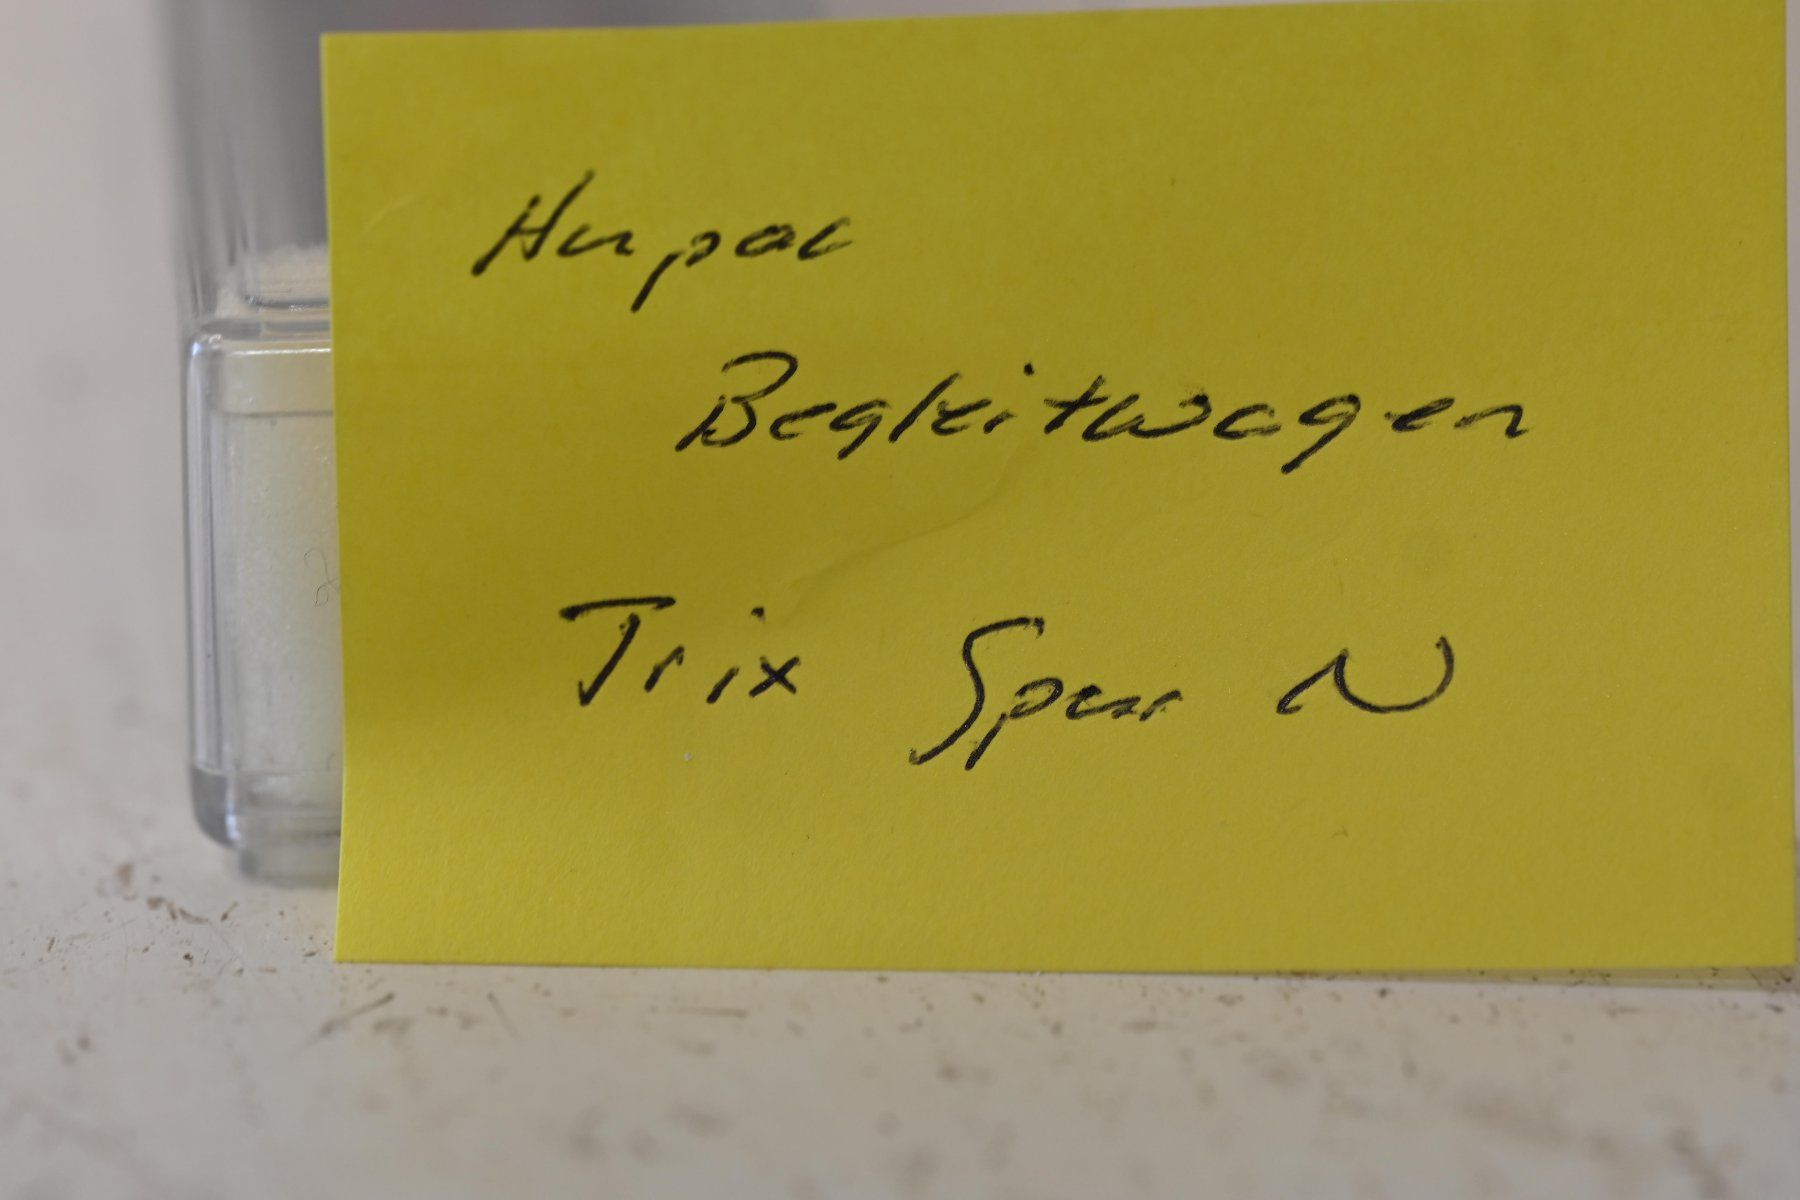 Hupac
Begleitwagen
Trix Spur N